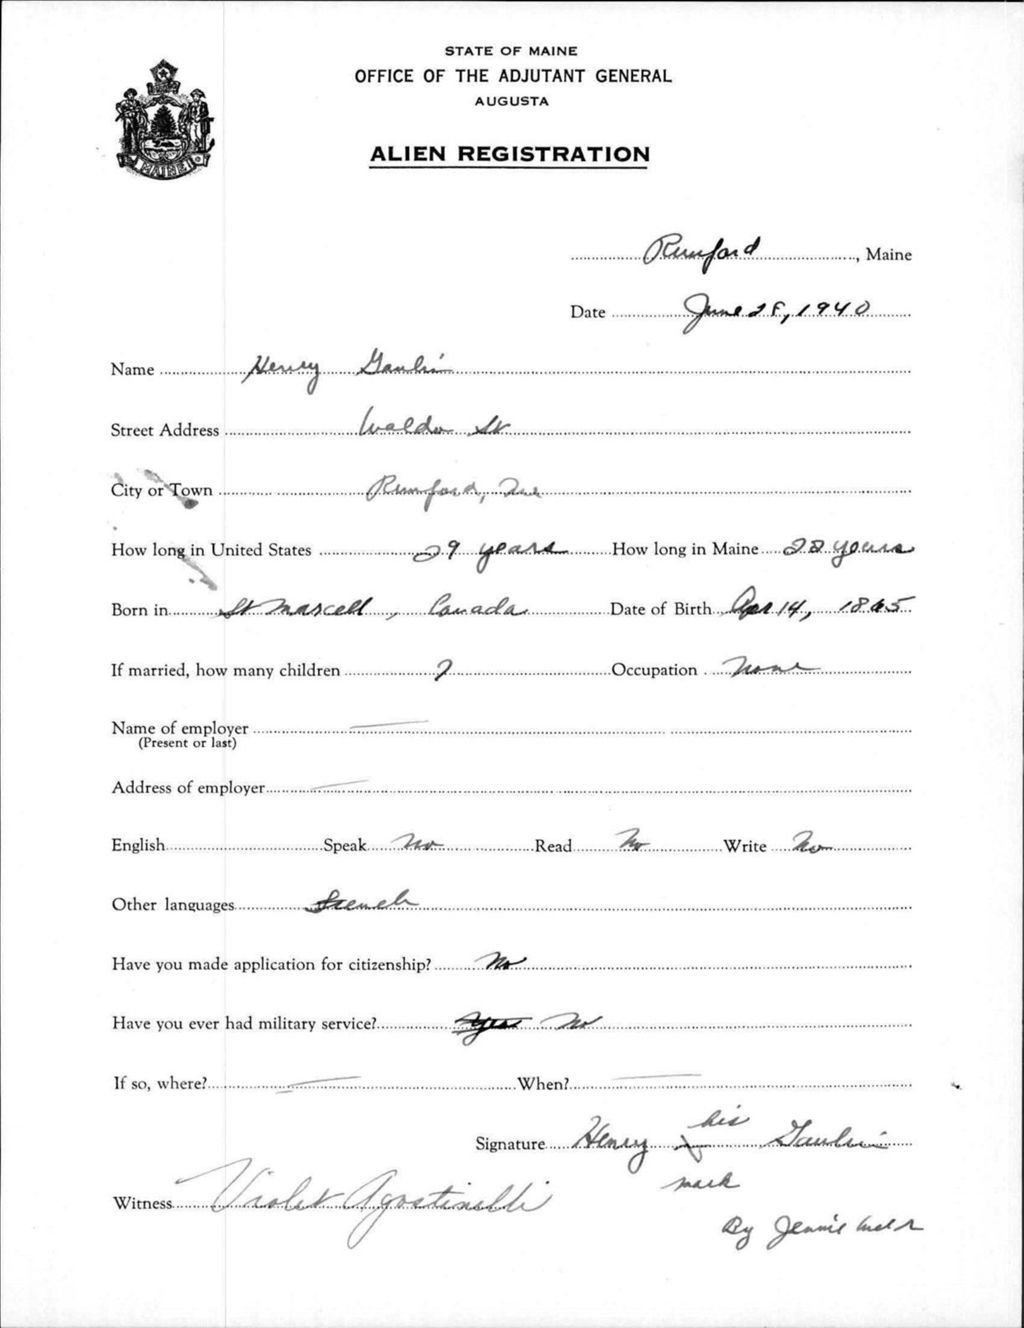 STATE OF MAINE
OFFICE OF THE ADJUTANT GENERAL
AUGUSTA
ALIEN REGISTRATION
MAINE
Rumford, Maine
Date June 28, 1940
Name Henry Gaulin
Street Address Waldo St
City or Town Rumford, Me
How long in United States 29 years How long in Maine 28 years
Born in St Marcell, Canada Date of Birth Apr 14, 1865
If married, how many children 7 Occupation None
Name of employer
(Present or last)
Address of employer
English Speak No Read No Write No
Other languages French
Have you made application for citizenship? No
Have you ever had military service? Yes No
If so, where? When?
his
Signature Henry X Gaulin
mark
Witness Violet Agostinelli
By Jennie